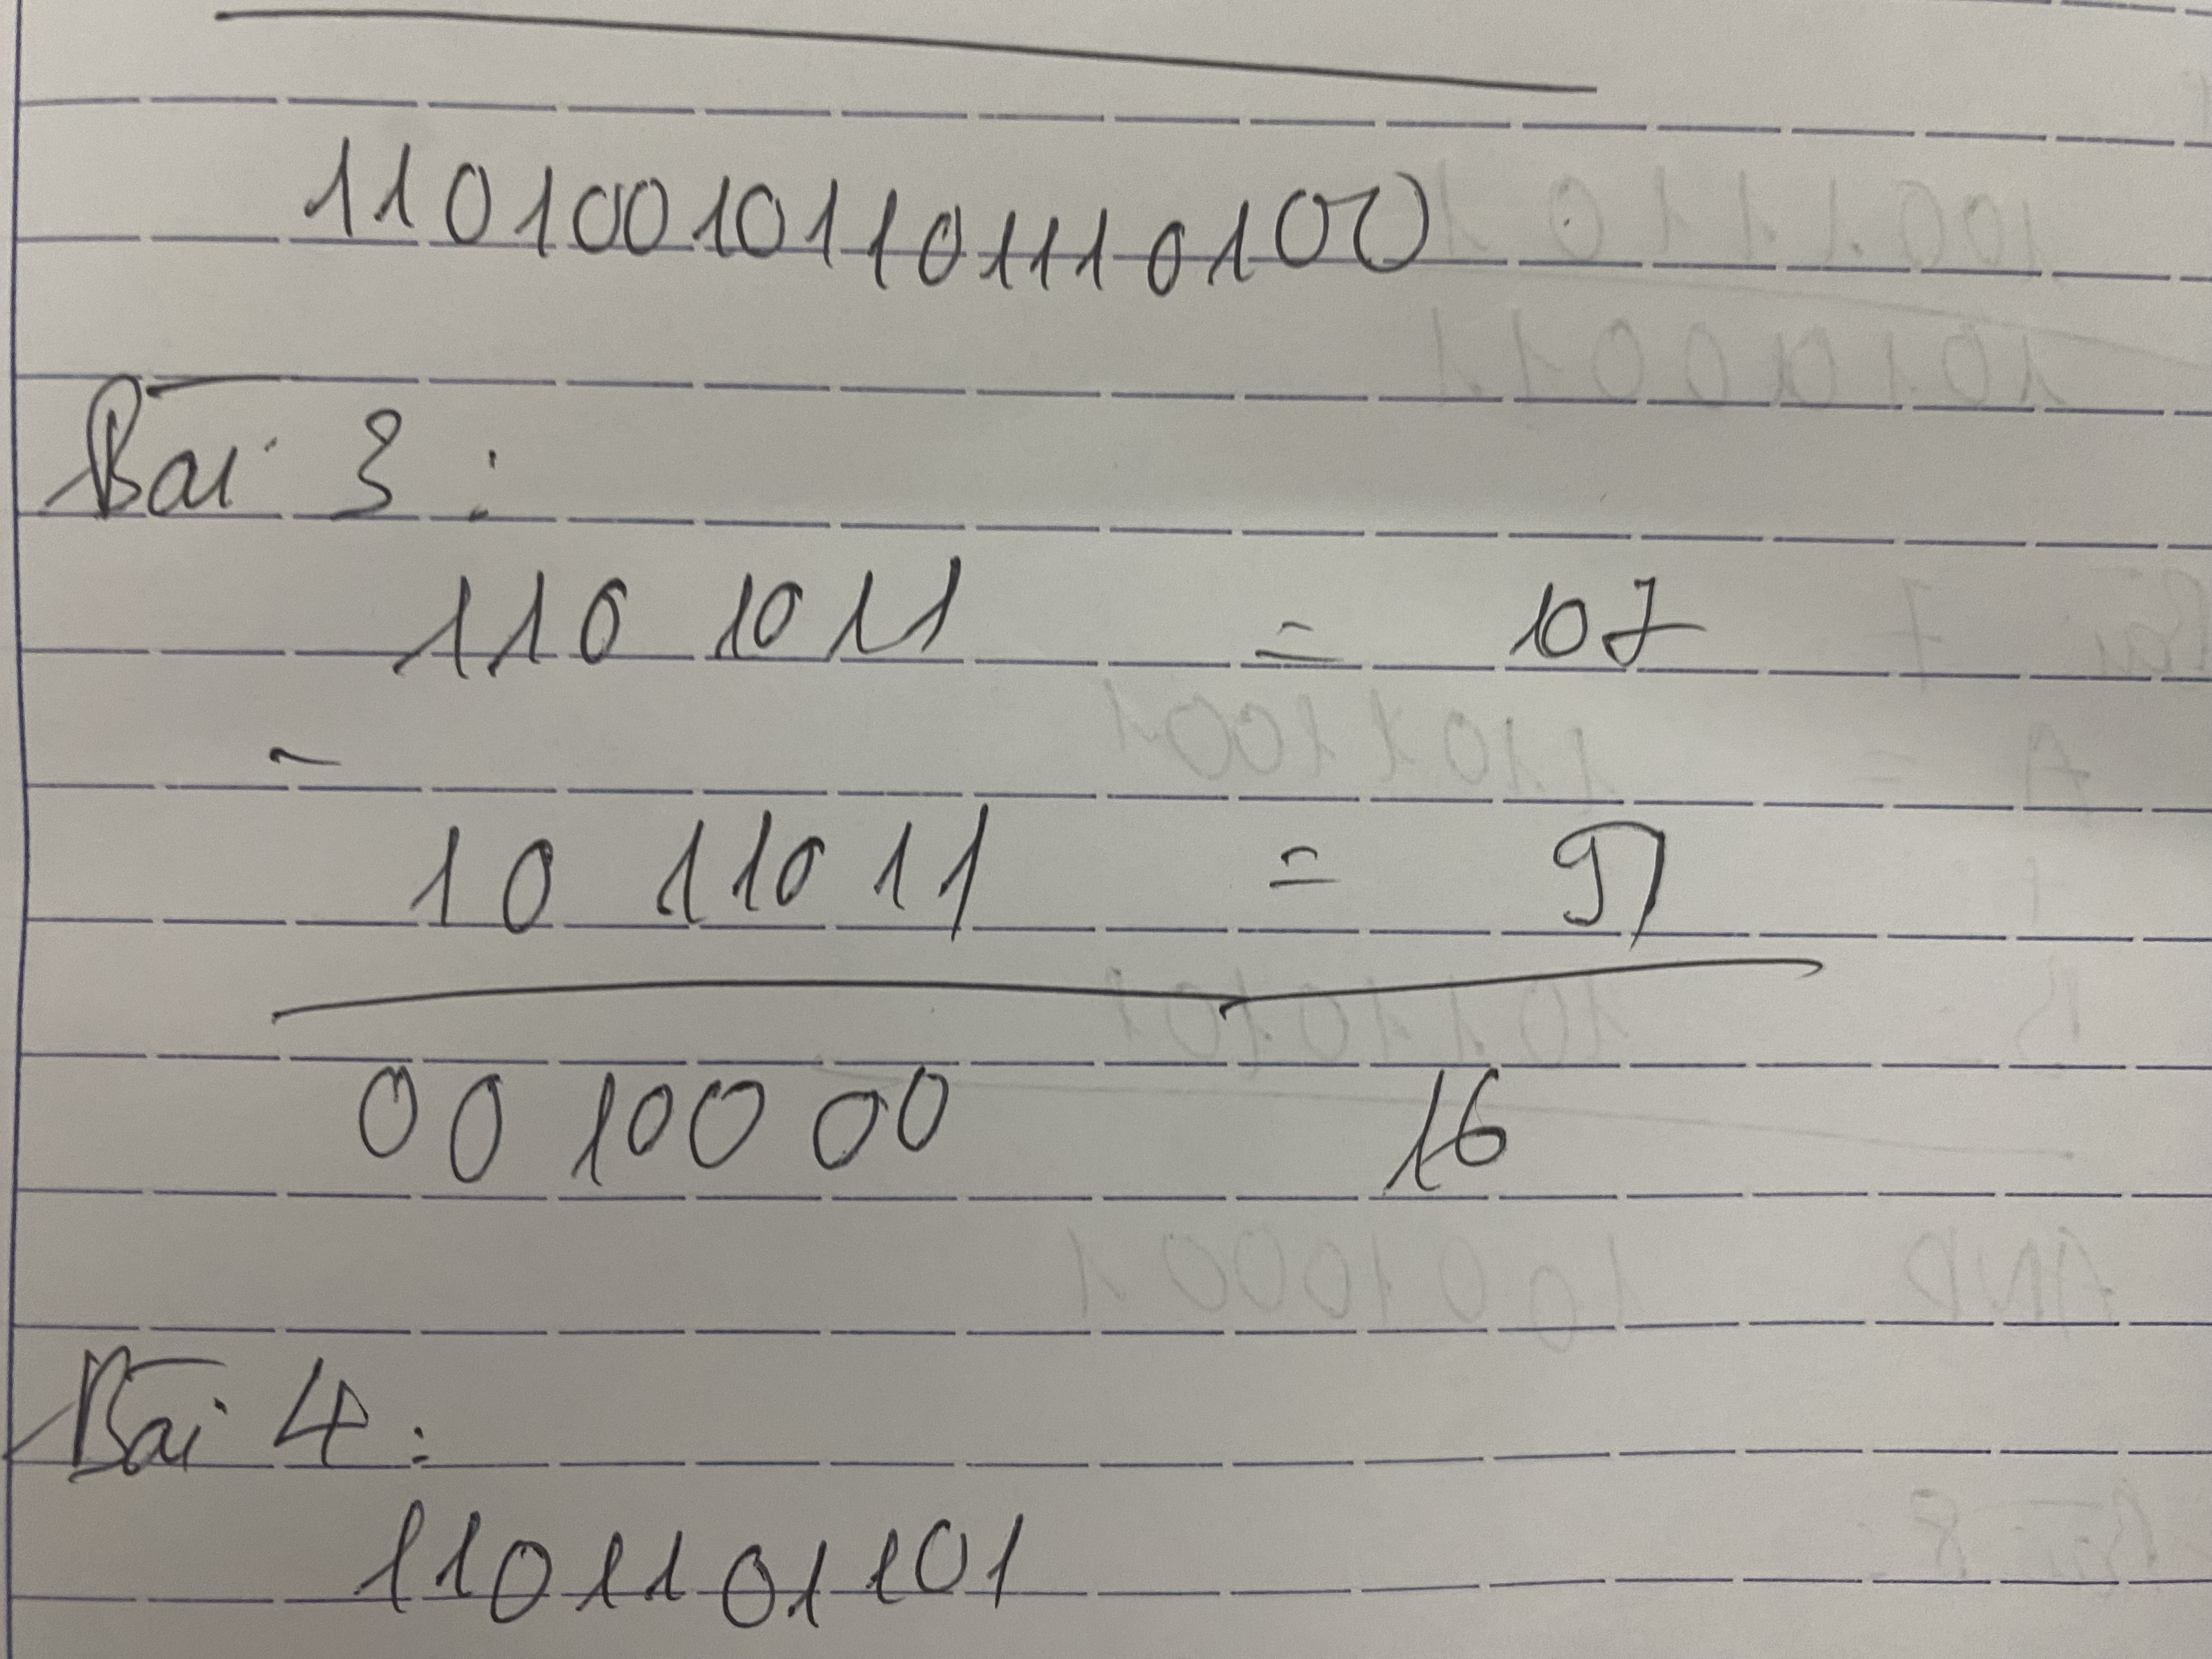 110100101101110100
Bài 3:
1101011 = 107
-
1011011 = 91
0010000 16
Bài 4:
1101101101